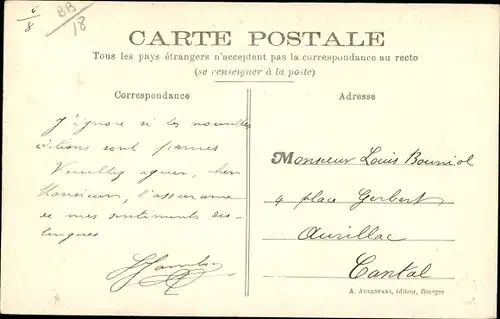 6/8
BB
18
CARTE POSTALE
Tous les pays étrangers n'acceptent pas la correspondance au recto
(se renseigner à la poste)
Correspondance
J'ignore si les nouvelles
éditions sont parues
Veuillez agréer, cher
Monsieur, l'assurance
de mes sentiments dis-
tingués
Adresse
Monsieur Louis Bouniol
4 place Gerbert
Aurillac
Cantal
A. AUXENFANS, éditeur, Bourges